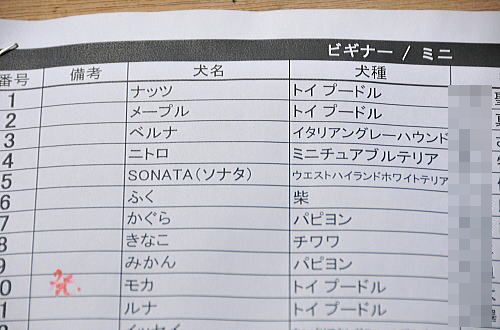 ビギナー / ミニ
番号 備考 犬名 犬種
1 ナッツ トイ プードル
2 メープル トイ プードル
3 ベルナ イタリアングレーハウンド
4 ニトロ ミニチュアブルテリア
5 SONATA(ソナタ) ウエストハイランドホワイトテリア
6 ふく 柴
7 かぐら パピヨン
8 きなこ チワワ
9 みかん パピヨン
0 モカ トイ プードル
1 ルナ トイ プードル